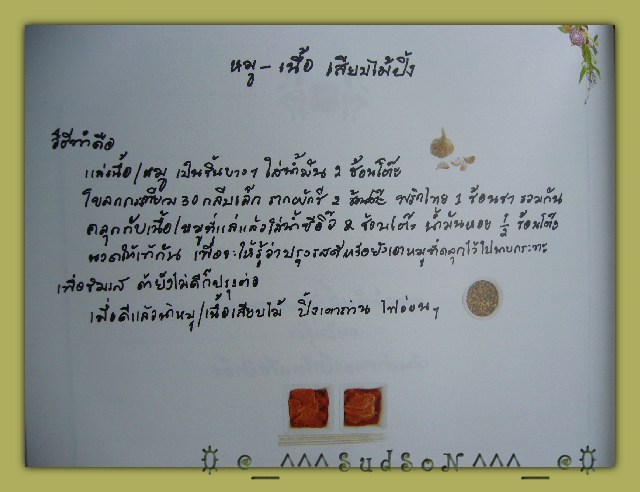 หมู - เนื้อ เสียบไม้ปิ้ง
วิธีทำคือ
แล่เนื้อ/หมู เป็นชิ้นบางๆ ใส่น้ำมัน 2 ช้อนโต๊ะ
โขลกกระเทียม 30 กลีบเล็ก รากผักชี 2 ช้อนโต๊ะ พริกไทย 1 ช้อนชา รวมกัน
คลุกกับเนื้อ/หมูที่แล่แล้วใส่น้ำซีอิ๊ว 2 ช้อนโต๊ะ น้ำมันหอย 1/2 ช้อนโต๊ะ
นวดให้เข้ากัน เพื่อจะให้รู้ว่าปรุงรสดีหรือยังเอาหมูที่คลุกไว้ไปนาบกระทะ
เพื่อชิมรส ถ้ายังไม่ดีก็ปรุงต่อ
เมื่อดีแล้วนำหมู/เนื้อเสียบไม้ ปิ้งเตาถ่าน ไฟอ่อนๆ
e_^^^SudSoN^^^_e